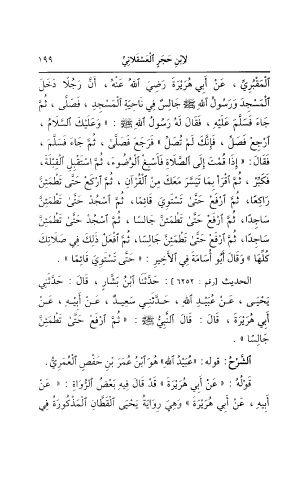 لِابْنِ حَجَرٍ الْعَسْقَلَانِيِّ ١٩٩
الْمَقْبُرِيِّ، عَنْ أَبِي هُرَيْرَةَ رَضِيَ اللهُ عَنْهُ، أَنَّ رَجُلًا دَخَلَ
الْمَسْجِدَ وَرَسُولُ اللهِ ﷺ جَالِسٌ فِي نَاحِيَةِ الْمَسْجِدِ، فَصَلَّى، ثُمَّ
جَاءَ فَسَلَّمَ عَلَيْهِ، فَقَالَ لَهُ رَسُولُ اللهِ ﷺ: «وَعَلَيْكَ السَّلَامُ،
ارْجِعْ فَصَلِّ، فَإِنَّكَ لَمْ تُصَلِّ» فَرَجَعَ فَصَلَّى، ثُمَّ جَاءَ فَسَلَّمَ،
فَقَالَ: «إِذَا قُمْتَ إِلَى الصَّلَاةِ فَأَسْبِغِ الْوُضُوءَ، ثُمَّ اسْتَقْبِلِ الْقِبْلَةَ،
فَكَبِّرْ، ثُمَّ اقْرَأْ بِمَا تَيَسَّرَ مَعَكَ مِنَ الْقُرْآنِ، ثُمَّ ارْكَعْ حَتَّى تَطْمَئِنَّ
رَاكِعًا، ثُمَّ ارْفَعْ حَتَّى تَسْتَوِيَ قَائِمًا، ثُمَّ اسْجُدْ حَتَّى تَطْمَئِنَّ
سَاجِدًا، ثُمَّ ارْفَعْ حَتَّى تَطْمَئِنَّ جَالِسًا، ثُمَّ اسْجُدْ حَتَّى تَطْمَئِنَّ
سَاجِدًا، ثُمَّ ارْفَعْ حَتَّى تَطْمَئِنَّ جَالِسًا، ثُمَّ افْعَلْ ذَلِكَ فِي صَلَاتِكَ
كُلِّهَا» وَقَالَ أَبُو أُسَامَةَ فِي الْأَخِيرِ: «حَتَّى تَسْتَوِيَ قَائِمًا».
الحديث [رقم: ٦٢٥٢]: حَدَّثَنَا ابْنُ بَشَّارٍ، قَالَ: حَدَّثَنِي
يَحْيَى، عَنْ عُبَيْدِ اللهِ، حَدَّثَنِي سَعِيدٌ، عَنْ أَبِيهِ، عَنْ
أَبِي هُرَيْرَةَ، قَالَ: قَالَ النَّبِيُّ ﷺ: «ثُمَّ ارْفَعْ حَتَّى تَطْمَئِنَّ
جَالِسًا».
الشَّرْحُ: قوله: «عُبَيْدُ اللهِ» هُوَ ابْنُ عُمَرَ بْنِ حَفْصٍ الْعُمَرِيُّ.
قَوْلُهُ: «عَنْ أَبِي هُرَيْرَةَ» قَدْ قَالَ فِيهِ بَعْضُ الرُّوَاةِ: «عَنْ
أَبِيهِ، عَنْ أَبِي هُرَيْرَةَ» وَهِيَ رِوَايَةُ يَحْيَى الْقَطَّانِ الْمَذْكُورَةُ فِي